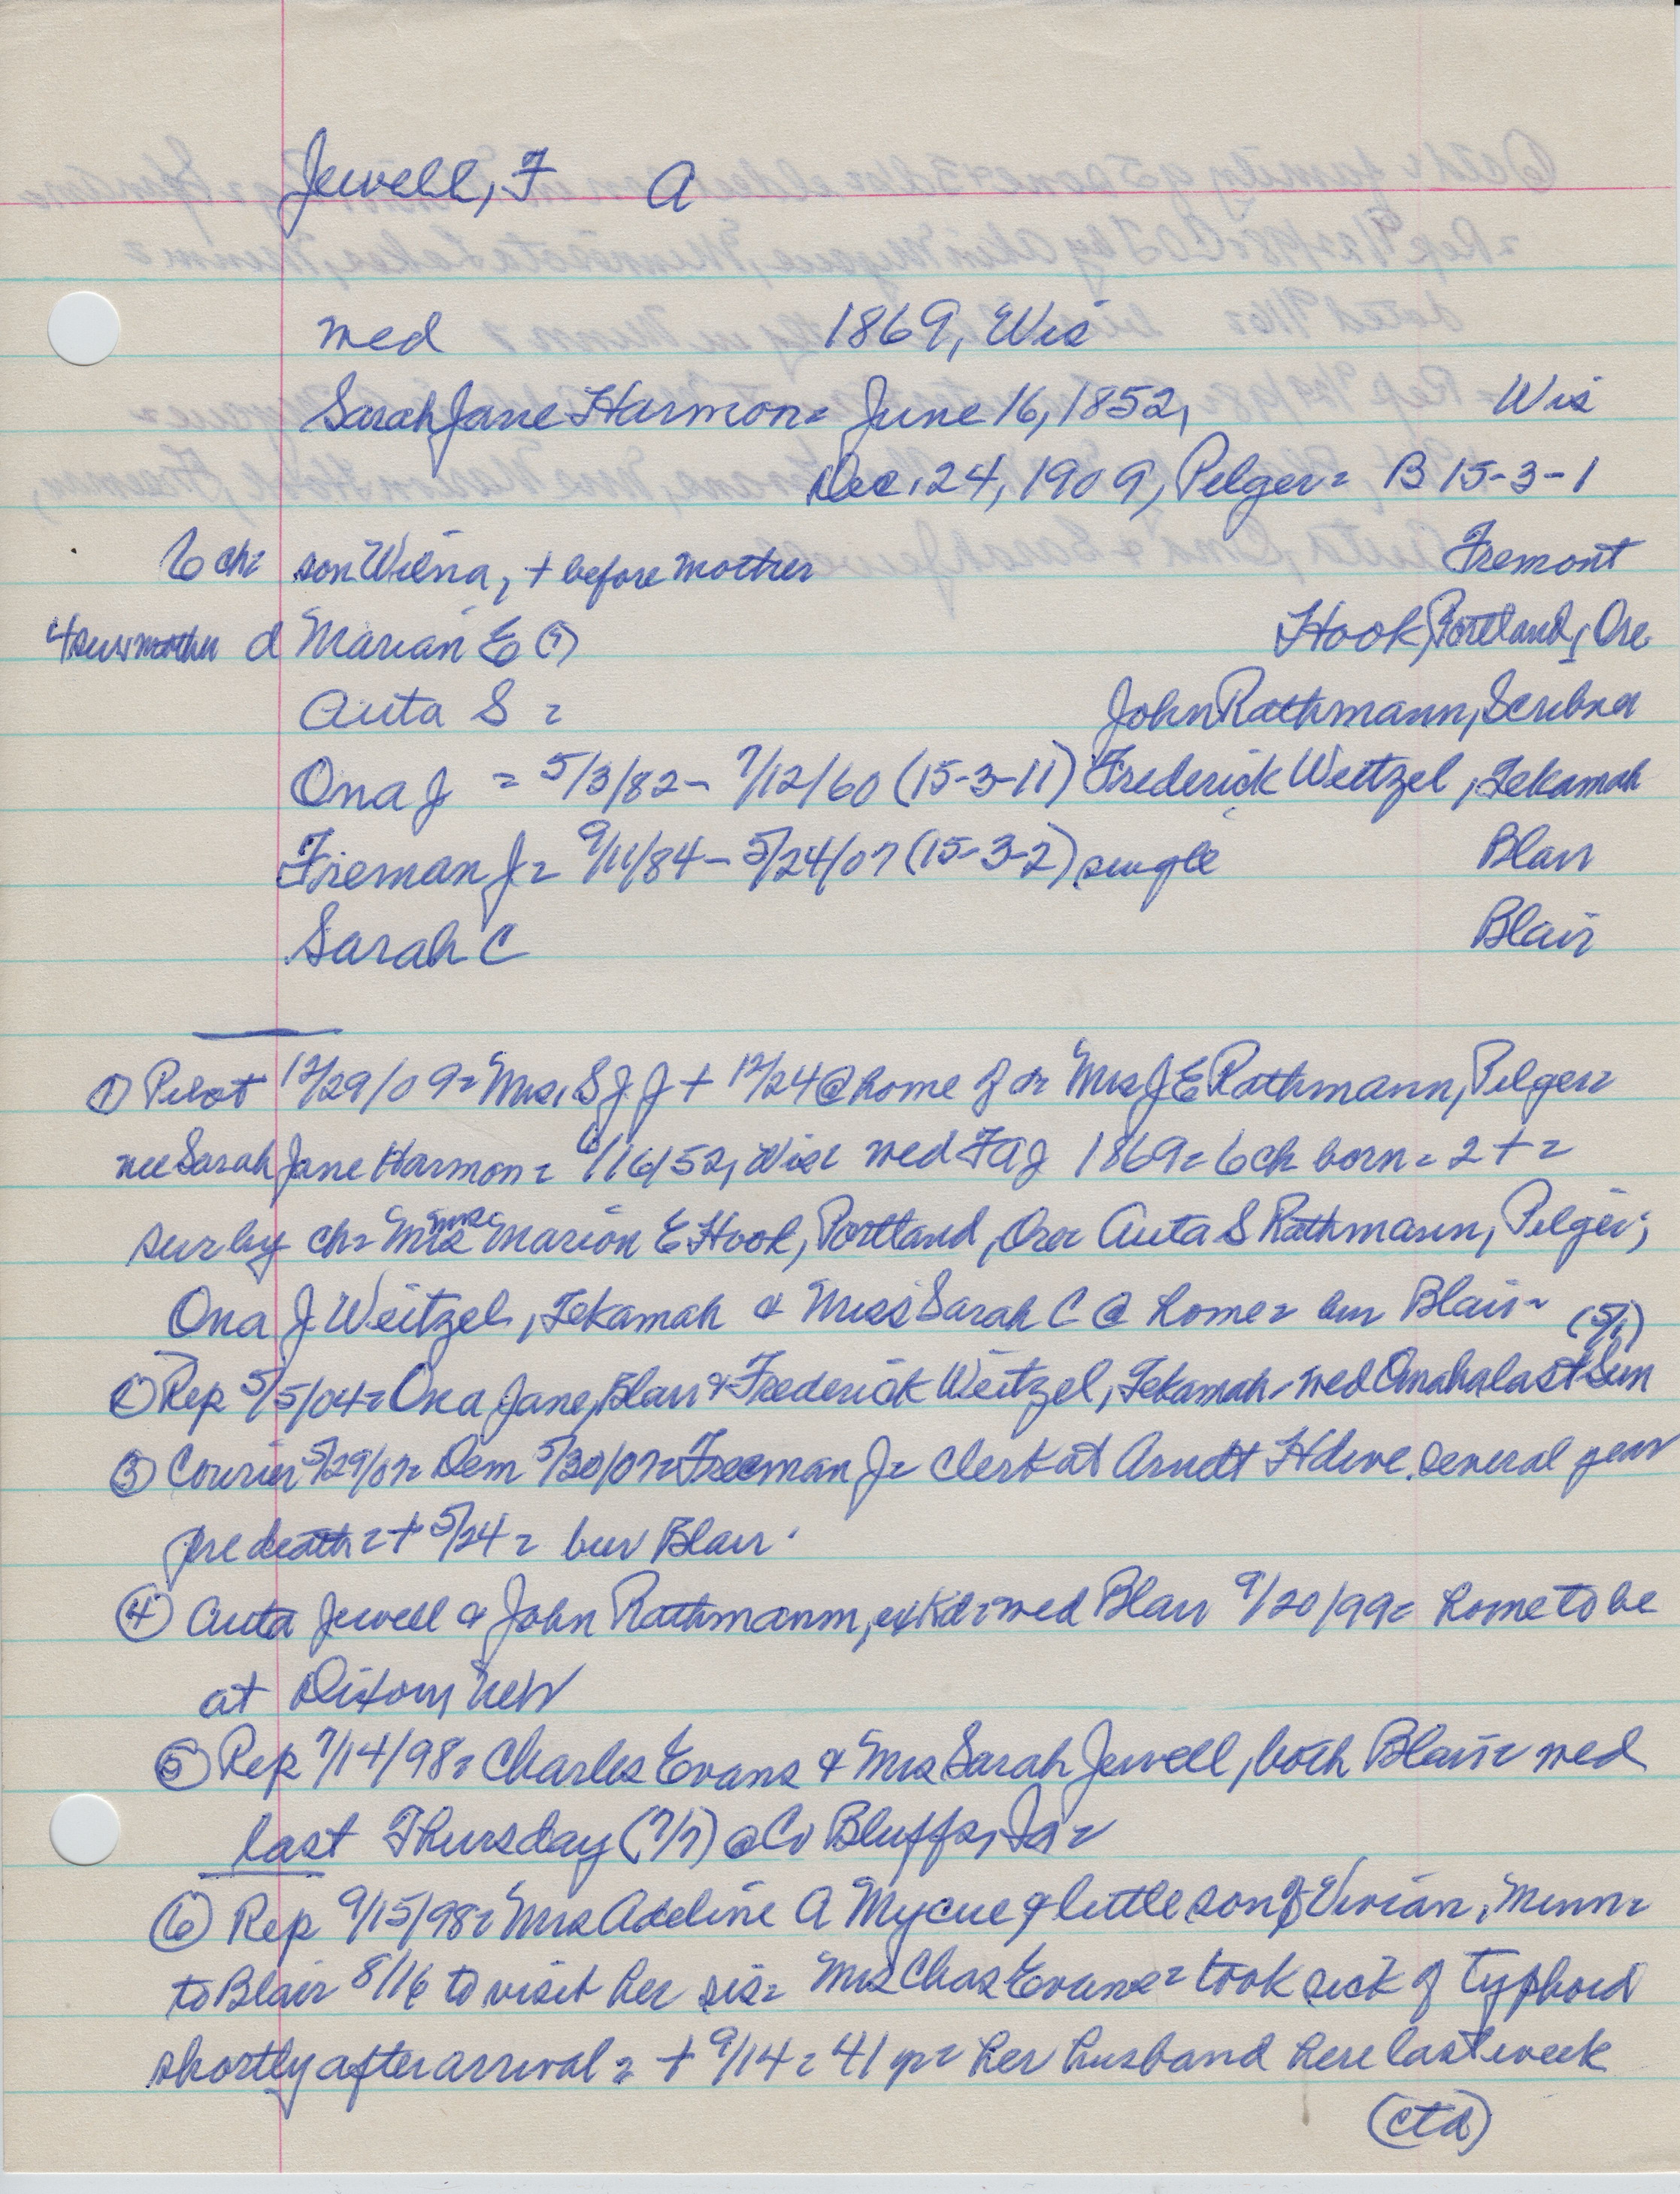 Jewell, F A
wed 1869, Wis
Sarah Jane Harmon= June 16, 1852, Wis
Dec. 24, 1909, Pilger= B 15-3-1
6 ch= son , + before mother Fremont
4 surv mother d Marian E (?) Hook, Portland, Ore
Auta S = John Rathmann, Scribner
Ona J = 5/3/82- 7/12/60 (15-3-11) Frederick Weitzel, Tekamah
Freman J= 9/11/84- 5/24/07 (15-3-2) single Blair
Sarah C Blair
① Pilot 12/29/09= Mrs. S J J + 12/24 @ home of dr Mrs J E Rathmann, Pilger=
nee Sarah Jane Harmon= 6/16/52, Wis= wed FAJ 1869= 6 ch born= 2 + =
sur by ch= Mrs Marion E Hook, Portland, Ore Auta S Rathmann, Pilger;
Ona J Weitzel, Tekamah & Miss Sarah C @ home= bur Blair- (5/1)
② Rep 5/5/04= Ona Jane, Blair & Frederick Weitzel, Tekamah- wed Omaha last Sun
③ Courier 5/29/07= Dem 5/30/07= Freeman J= clerk at Arndt Hdwe. several year
pre death= + 5/24= bur Blair.
④ Auta Jewell & John Rathmann, wed Blair 9/20/99= home to be
at Dixon, Neb
⑤ Rep 7/14/98= Charles Evans & Mrs Sarah Jewell, both Blair= wed
last Thursday (7/7) @ Co Bluffs, Ia=
⑥ Rep 9/15/98= Mrs Adeline A Mycue & little son of Vivian, Minn=
to Blair 8/16 to visit her sis= Mrs Chas Evans= took sick of typhoid
shortly after arrival= + 9/14= 41 yr= her husband here last week
(ctd)